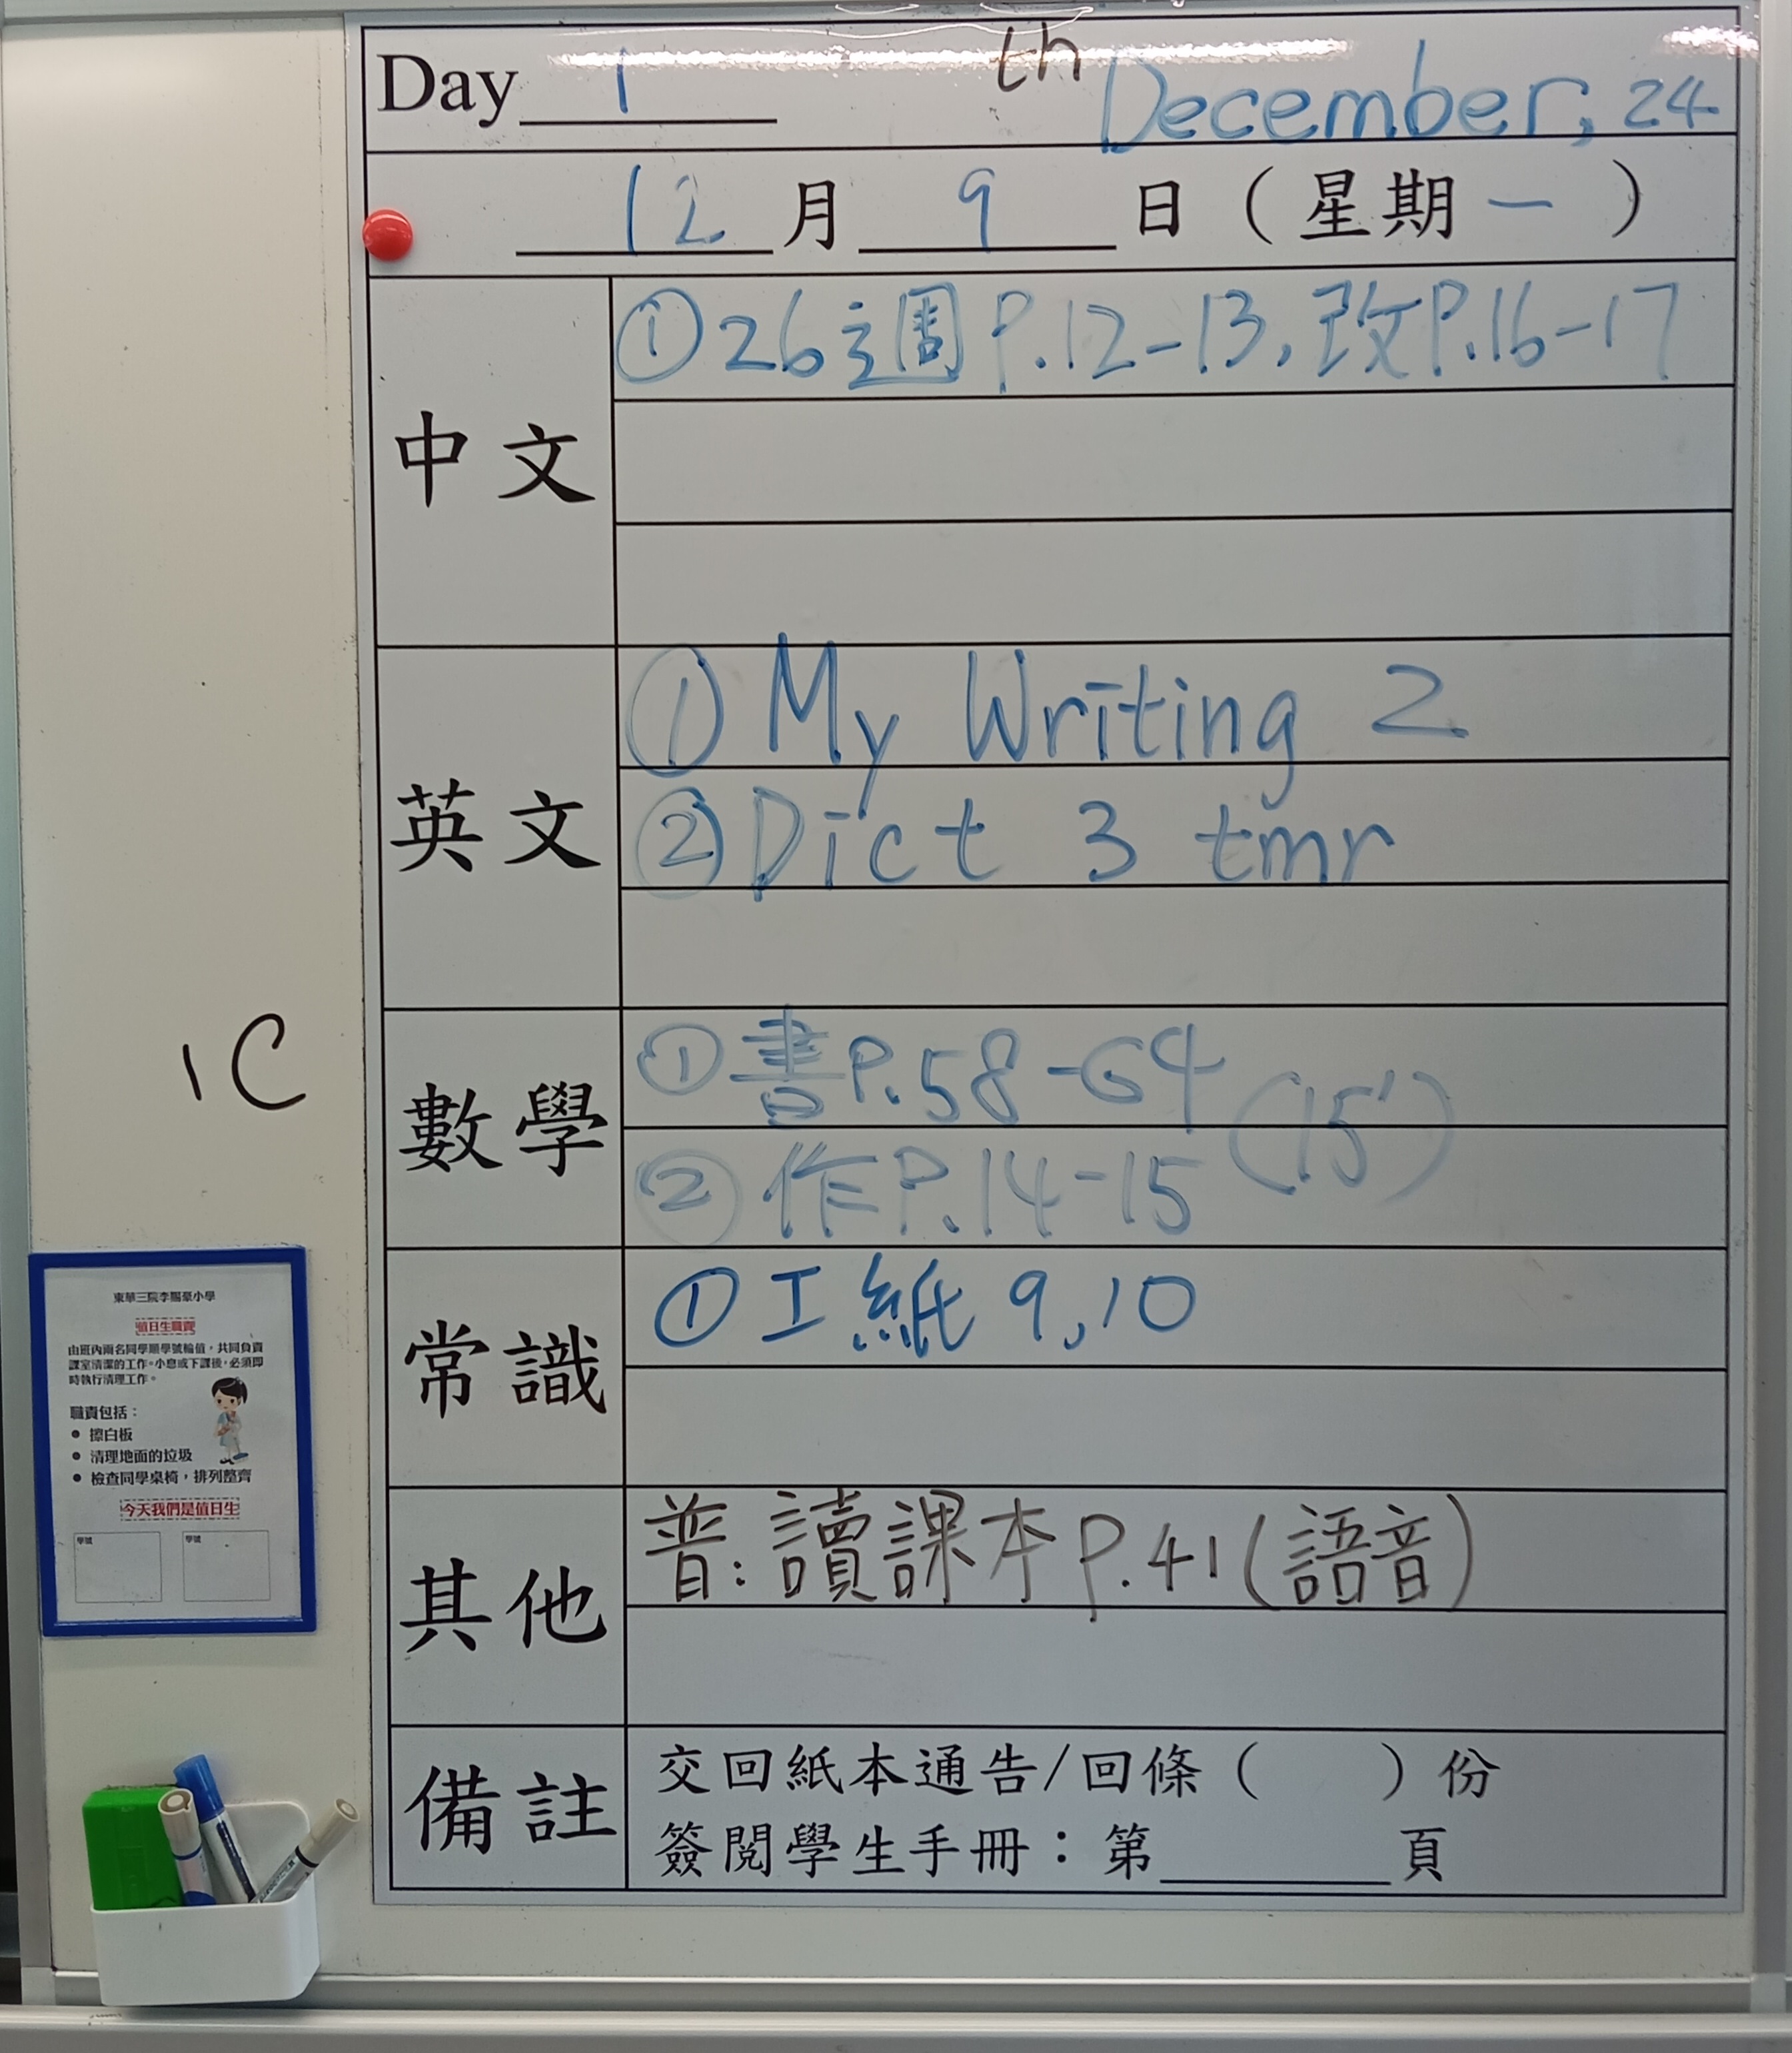 Day 1 th December, 24
12月9日(星期一)
中文
①26週P.12-13,改P.16-17
英文
①My Writing 2
②Dict 3 tmr
數學
①書P.58-64
②作P.14-15 (15')
常識
①工紙9,10
其他
普:讀課本P.41(語音)
備註
交回紙本通告/回條( )份
簽閱學生手冊:第____頁
1C
東華三院李賜豪小學
值日生職責
由班內兩名同學順學號輪值,共同負責
課室清潔的工作。小息或下課後,必須即
時執行清理工作。
職責包括:
● 擦白板
● 清理地面的垃圾
● 檢查同學桌椅,排列整齊
今天我們是值日生
學號 學號